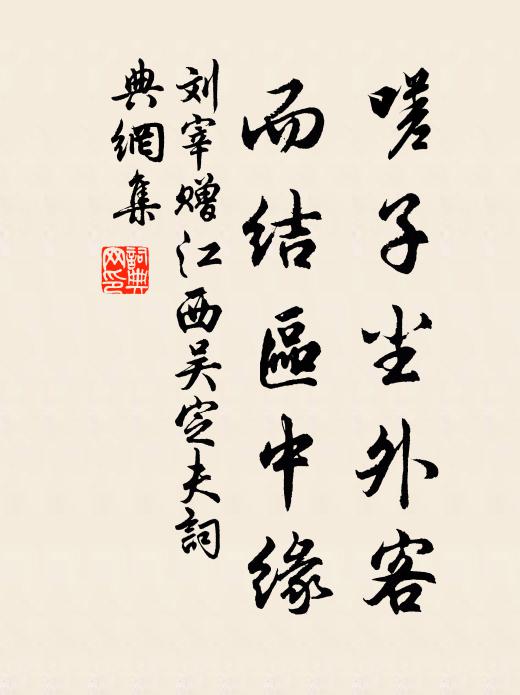 嗟子尘外客
而结區中缘
刘宰赠江西吴定夫詞
典網集
詞典网印